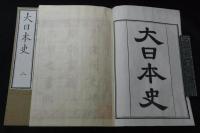 大日本史
大日本史 一